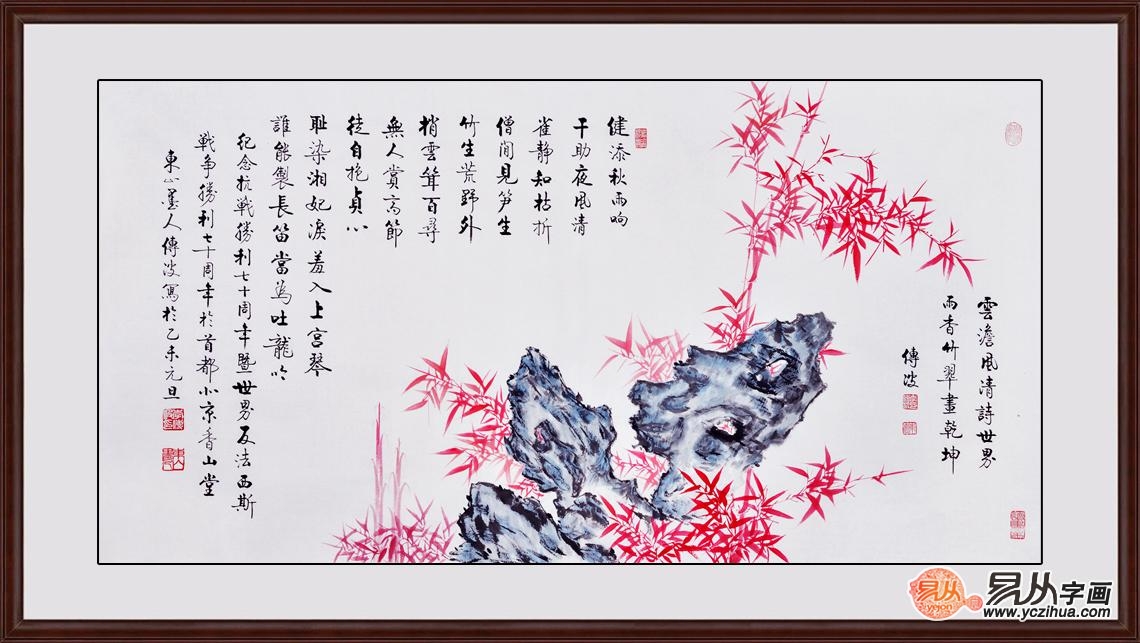 雲澹風清詩世界
雨香竹翠畫乾坤
傳波
健添秋雨响
干助夜風清
雀静知枯折
僧閒見笋生
竹生荒野外
梢雲聳百尋
無人賞高節
徒自抱貞心
耻染湘妃淚羞入上宫琴
誰能製長笛當為吐龍吟
纪念抗戰勝利七十周年暨世界反法西斯
戰争勝利七十周年於首都小京香山堂
東山墨人傳波寫於乙未元旦
易从字画
yejon
www.yczihua.com